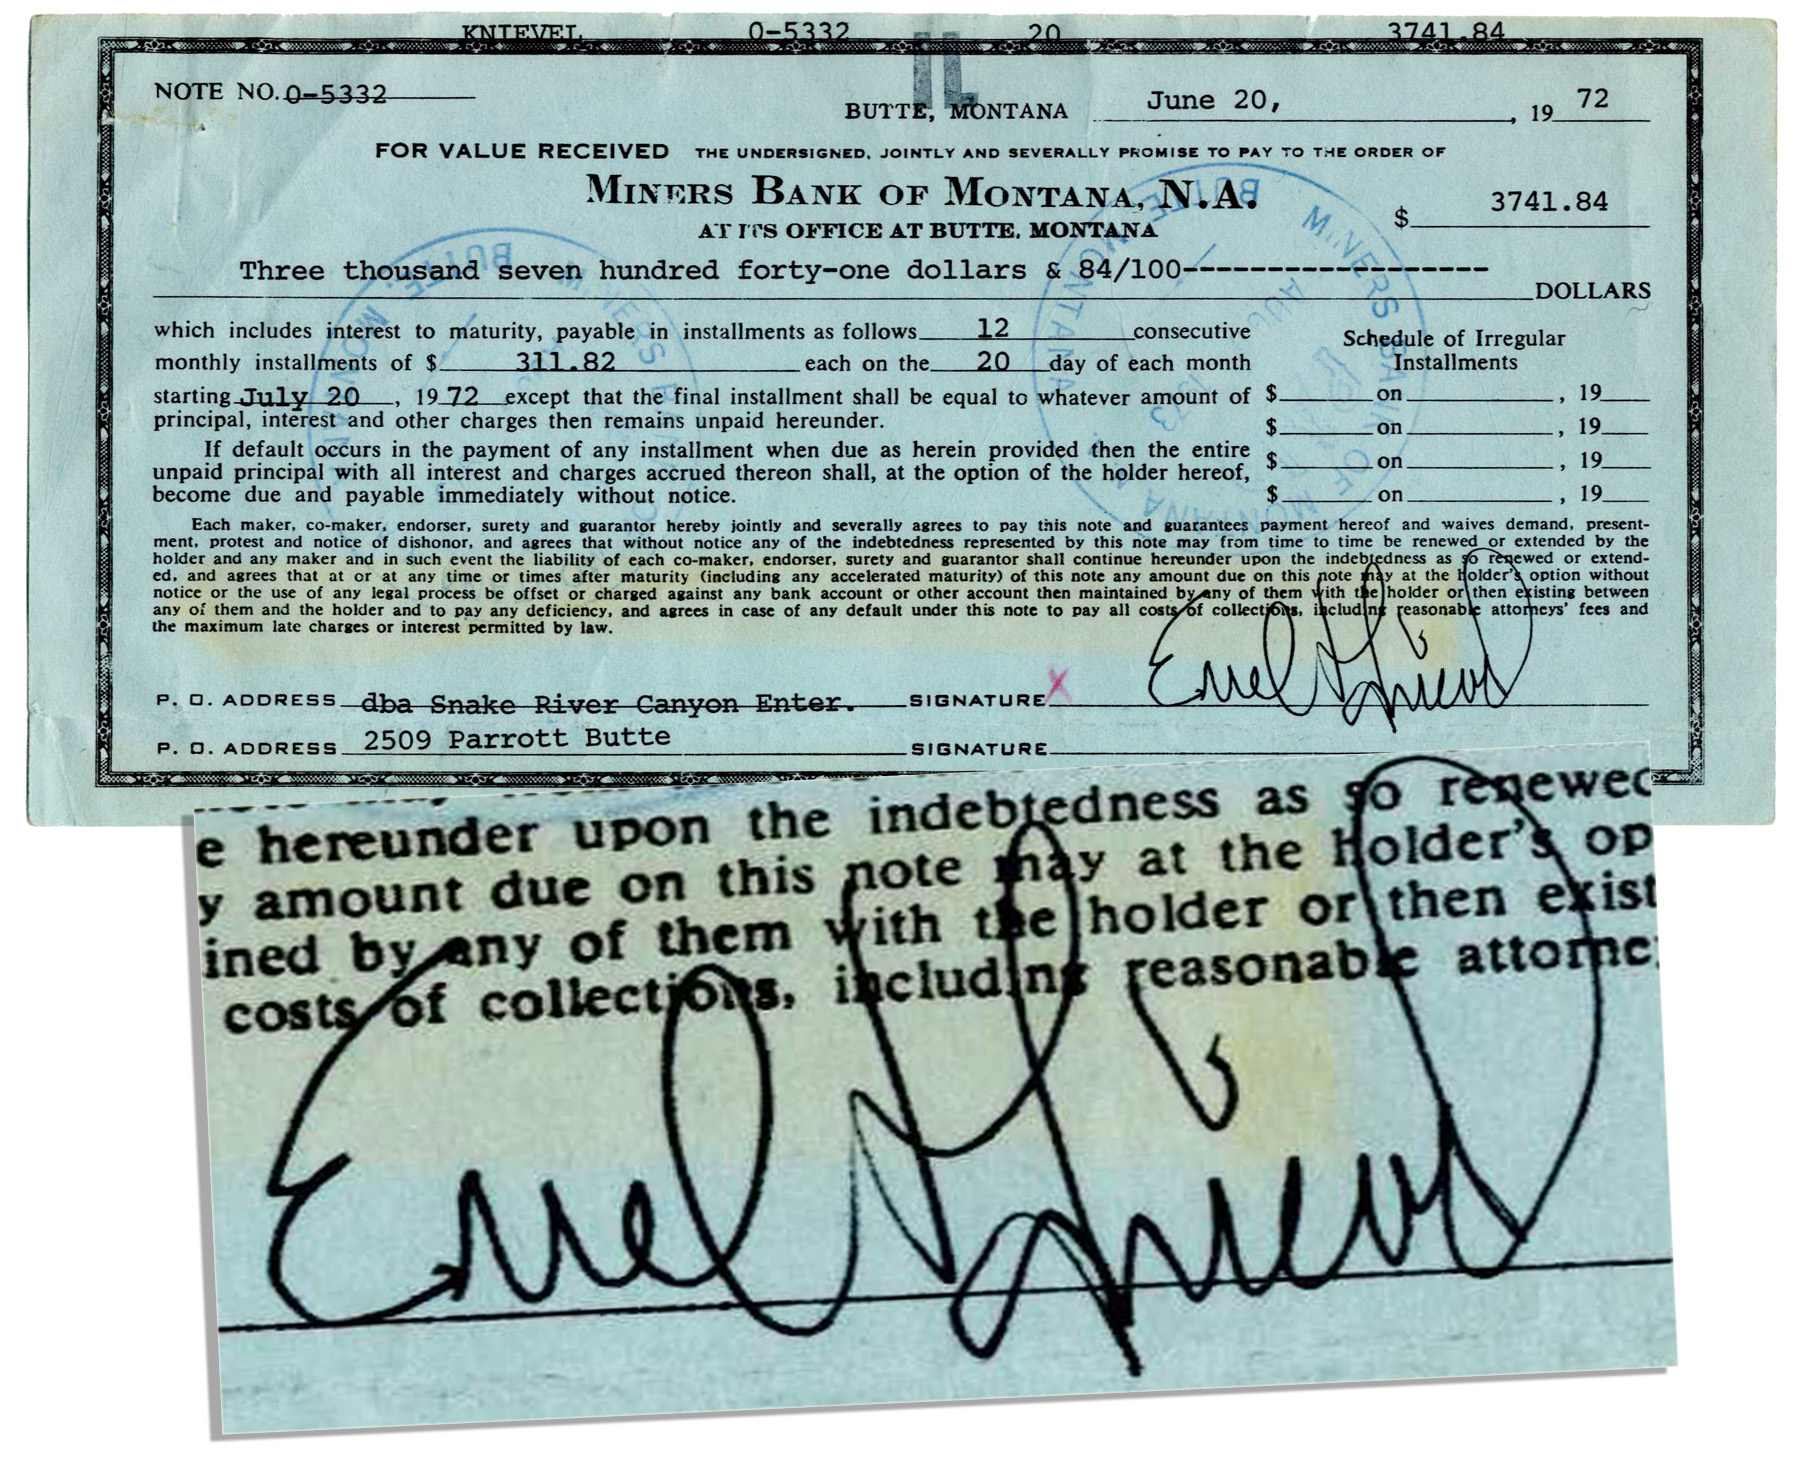 KNIEVEL 0-5332 20 3741.84
NOTE NO. 0-5332
BUTTE, MONTANA June 20, , 19 72
FOR VALUE RECEIVED THE UNDERSIGNED, JOINTLY AND SEVERALLY PROMISE TO PAY TO THE ORDER OF
MINERS BANK OF MONTANA, N.A.
$ 3741.84
AT ITS OFFICE AT BUTTE, MONTANA
Three thousand seven hundred forty-one dollars & 84/100-------------------
DOLLARS
which includes interest to maturity, payable in installments as follows 12 consecutive
monthly installments of $ 311.82 each on the 20 day of each month
starting July 20 , 19 72 except that the final installment shall be equal to whatever amount of
principal, interest and other charges then remains unpaid hereunder.
If default occurs in the payment of any installment when due as herein provided then the entire
unpaid principal with all interest and charges accrued thereon shall, at the option of the holder hereof,
become due and payable immediately without notice.
Schedule of Irregular
Installments
$ on , 19
$ on , 19
$ on , 19
$ on , 19
Each maker, co-maker, endorser, surety and guarantor hereby jointly and severally agrees to pay this note and guarantees payment hereof and waives demand, present-
ment, protest and notice of dishonor, and agrees that without notice any of the indebtedness represented by this note may from time to time be renewed or extended by the
holder and any maker and in such event the liability of each co-maker, endorser, surety and guarantor shall continue hereunder upon the indebtedness as so renewed or extend-
ed, and agrees that at or at any time or times after maturity (including any accelerated maturity) of this note any amount due on this note may at the holder's option without
notice or the use of any legal process be offset or charged against any bank account or other account then maintained by any of them with the holder or then existing between
any of them and the holder and to pay any deficiency, and agrees in case of any default under this note to pay all costs of collections, including reasonable attorneys' fees and
the maximum late charges or interest permitted by law.
P. O. ADDRESS dba Snake River Canyon Enter. SIGNATURE X Evel Knievel
P. O. ADDRESS 2509 Parrott Butte SIGNATURE
MINERS BANK OF MONTANA BUTTE, MONTANA
MINERS BANK OF MONTANA BUTTE, MONTANA
e hereunder upon the indebtedness as so renewed
y amount due on this note may at the holder's op
ined by any of them with the holder or then exist
costs of collections, including reasonable attorne
Evel Knievel